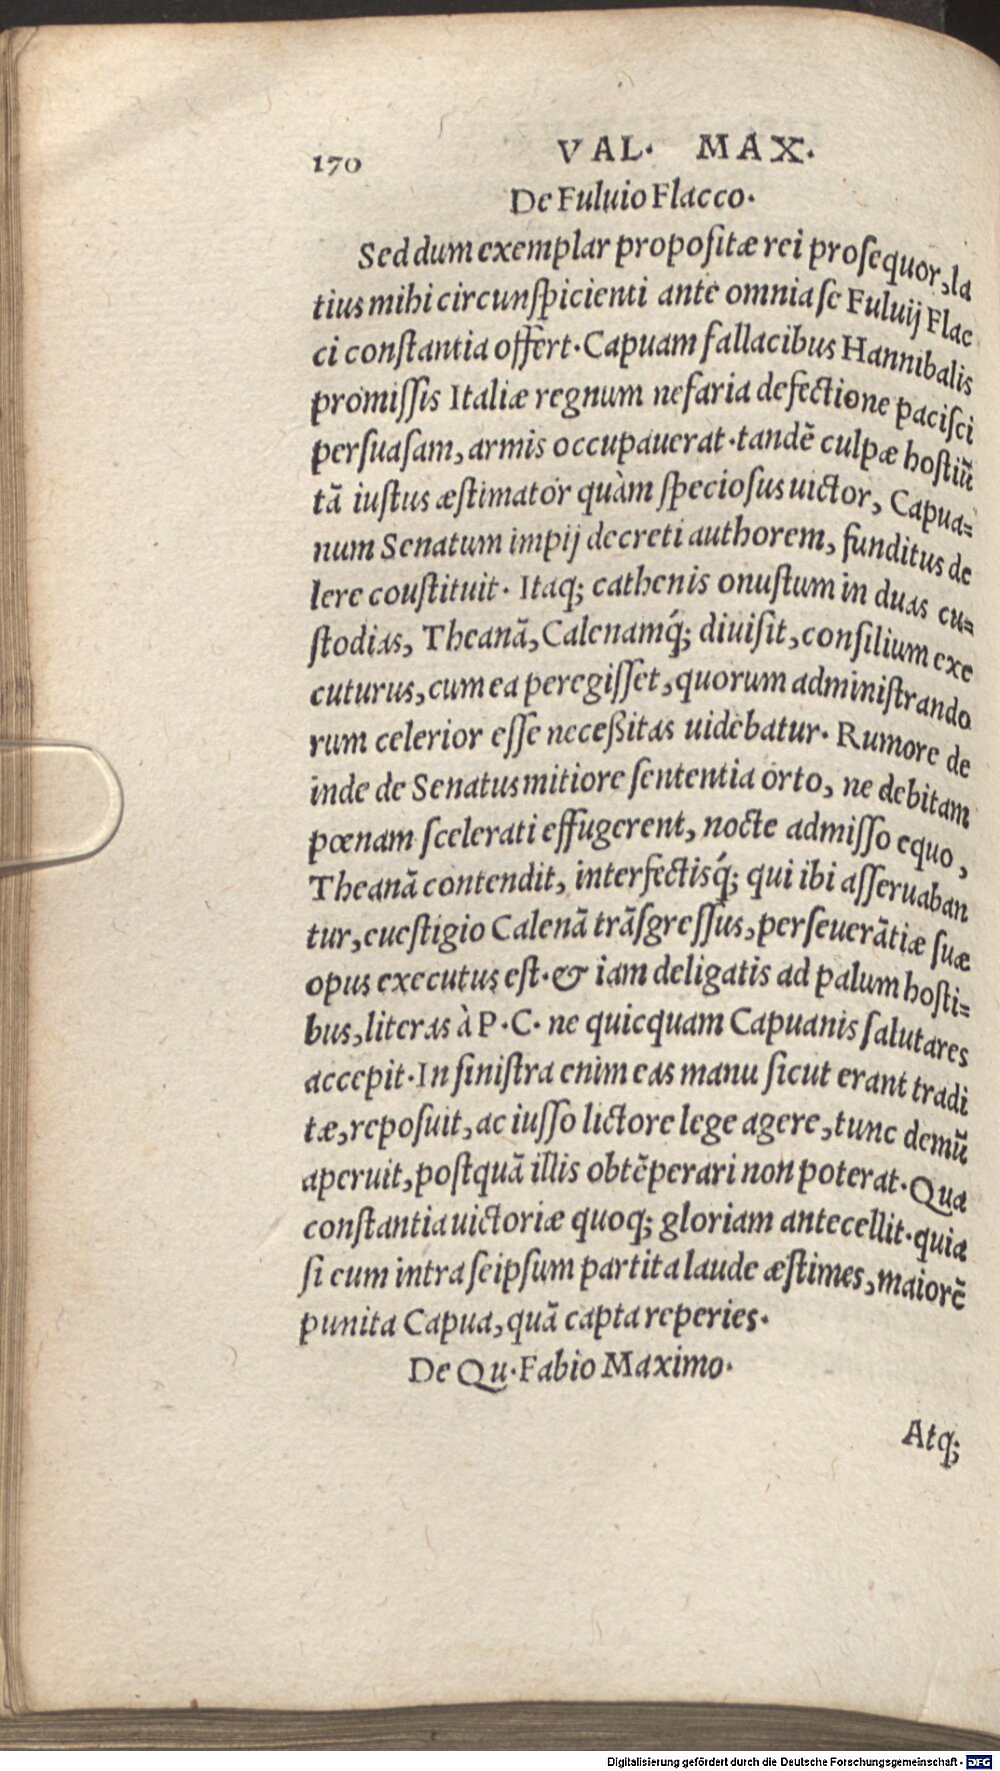 170 VAL. MAX.
De Fuluio Flacco.
Sed dum exemplar propositæ rei prosequor, la
tius mihi circunspicienti ante omnia se Fuluij Flac
ci constantia offert. Capuam fallacibus Hannibalis
promissis Italiæ regnum nefaria defectione pacisci
persuasam, armis occupauerat. tandē culpæ hostiū
tā iustus æstimator quàm speciosus uictor, Capua=
num Senatum impij decreti authorem, funditus de
lere coustituit. Itaq; cathenis onustum in duas cu=
stodias, Theanā, Calenamq́; diuisit, consilium exe
cuturus, cum ea peregisset, quorum administrando
rum celerior esse neceßitas uidebatur. Rumore de
inde de Senatus mitiore sententia orto, ne debitam
pœnam scelerati effugerent, nocte admisso equo,
Theanā contendit, interfectisq́; qui ibi asseruaban
tur, euestigio Calenā trāsgressus, perseuerātiæ suæ
opus executus est. & iam deligatis ad palum hosti=
bus, literas à P. C. ne quicquam Capuanis salutares
accepit. In sinistra enim eas manu sicut erant tradi
tæ, reposuit, ac iusso lictore lege agere, tunc demū
aperuit, postquā illis obtēperari non poterat. Qua
constantia uictoriæ quoq; gloriam antecellit. quia
si eum intra seipsum partita laude æstimes, maiorē
punita Capua, quā capta reperies.
De Qu. Fabio Maximo.
Atq;
Digitalisierung gefördert durch die Deutsche Forschungsgemeinschaft - DFG